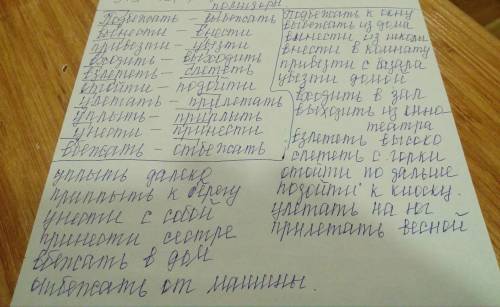 Подбежать – выбежать
вынести – внести
привезти – увезти
входить – выходить
взлететь – слететь
отойти – подойти
улетать – прилетать
уплыть – приплыть
унести – принести
вбежать – отбежать
Подбежать к окну
выбежать из дома
вынести из школы
внести в комнату
привезти с
увезти домой
входить в зал
выходить из кино
театра
взлететь высоко
слететь с горки
отойти по дальше
подойти к киоску.
улетать на юг
прилетать весной
уплыть далеко
приплыть к берегу
унести с собой
принести сестре
вбежать в дом
отбежать от машины.